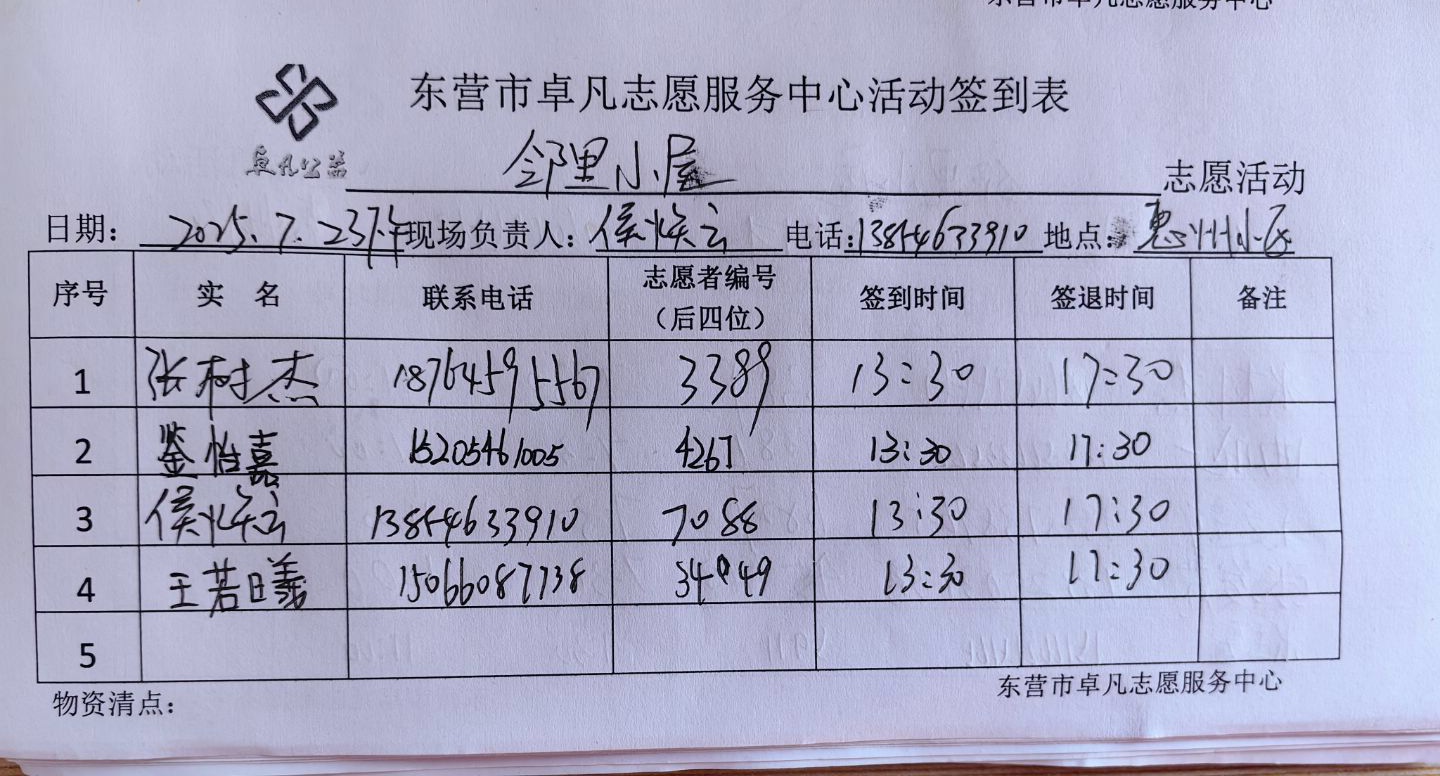 东营市卓凡志愿服务中心
东营市卓凡志愿服务中心活动签到表
卓凡公益
邻里小屋 志愿活动
日期: 2025.7.23下午 现场负责人: 侯焕云 电话: 13854633910 地点: 惠州小区
序号 实 名 联系电话 志愿者编号（后四位） 签到时间 签退时间 备注
1 张树杰 18764595567 3389 13:30 17:30
2 鉴怡嘉 15205461005 4267 13:30 17:30
3 侯焕云 13854633910 7088 13:30 17:30
4 王若曦 15066087738 13:30 17:30
5
物资清点: 东营市卓凡志愿服务中心